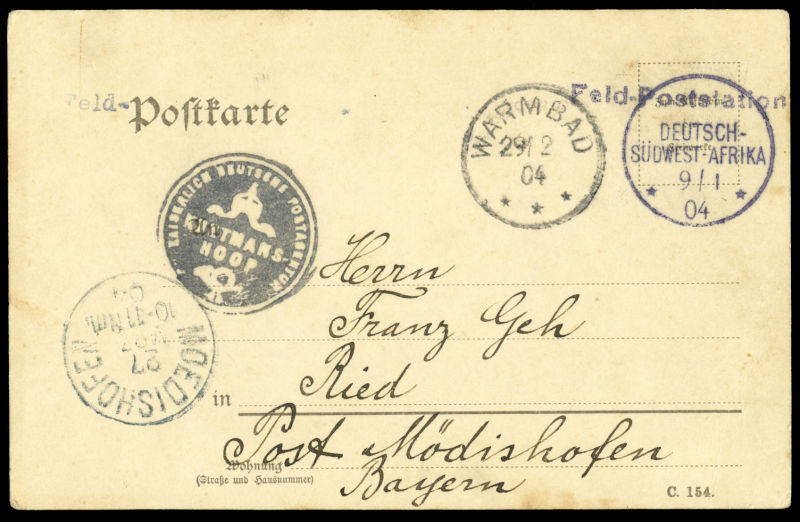 Feld-Poststation
Feld-Postkarte
DEUTSCH-
SÜDWEST-AFRIKA
9/1
04
WARMBAD
29/2
04
KAISERLICH DEUTSCHE POSTAGENTUR
An
HOOP
Herrn
Franz Geh
in Ried
Post Mödishofen
Wohnung
(Straße und Hausnummer)
Bayern
MOEDISHOFEN
27
10-11 Nm.
04
C. 154.